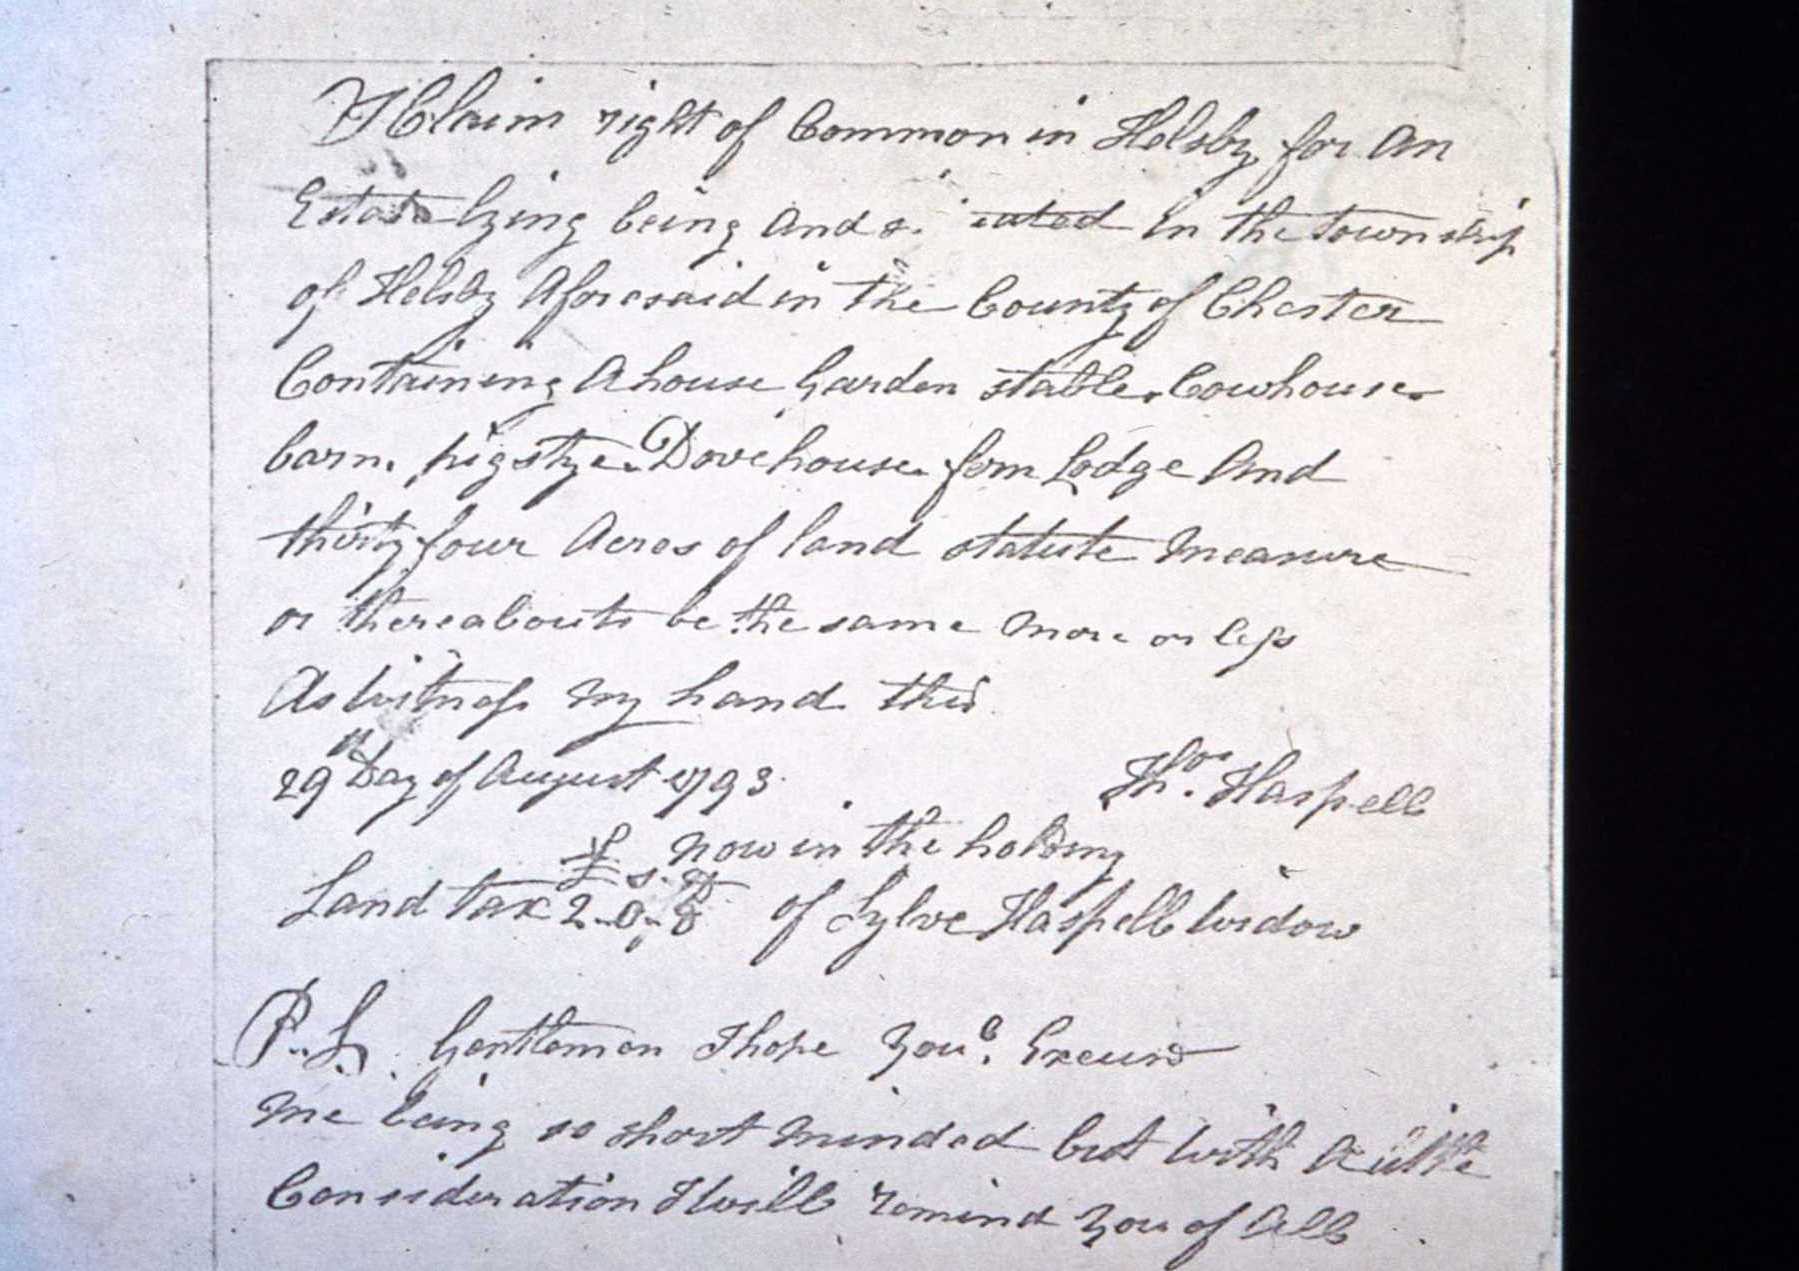 I Claim right of Common in Helsby for An
Estate lying being and si uated in the township
of Helsby Aforesaid in the County of Chester
Containing A house Garden stable. Cowhouse.
barn. pigstye. Dovehouse. fern Lodge And
thirty four Acres of land statute Measure
or thereabouts be the same more or less
As Witness my hand this
29th Day of August 1793. Thos. Haspell
£ s. D now in the holding
Land tax 2-0-8 of Sylve Haspell Widow
P..S. Gentlemen I hope you. Excuse
me being so short minded but with A little
Consideration I will remind you of All